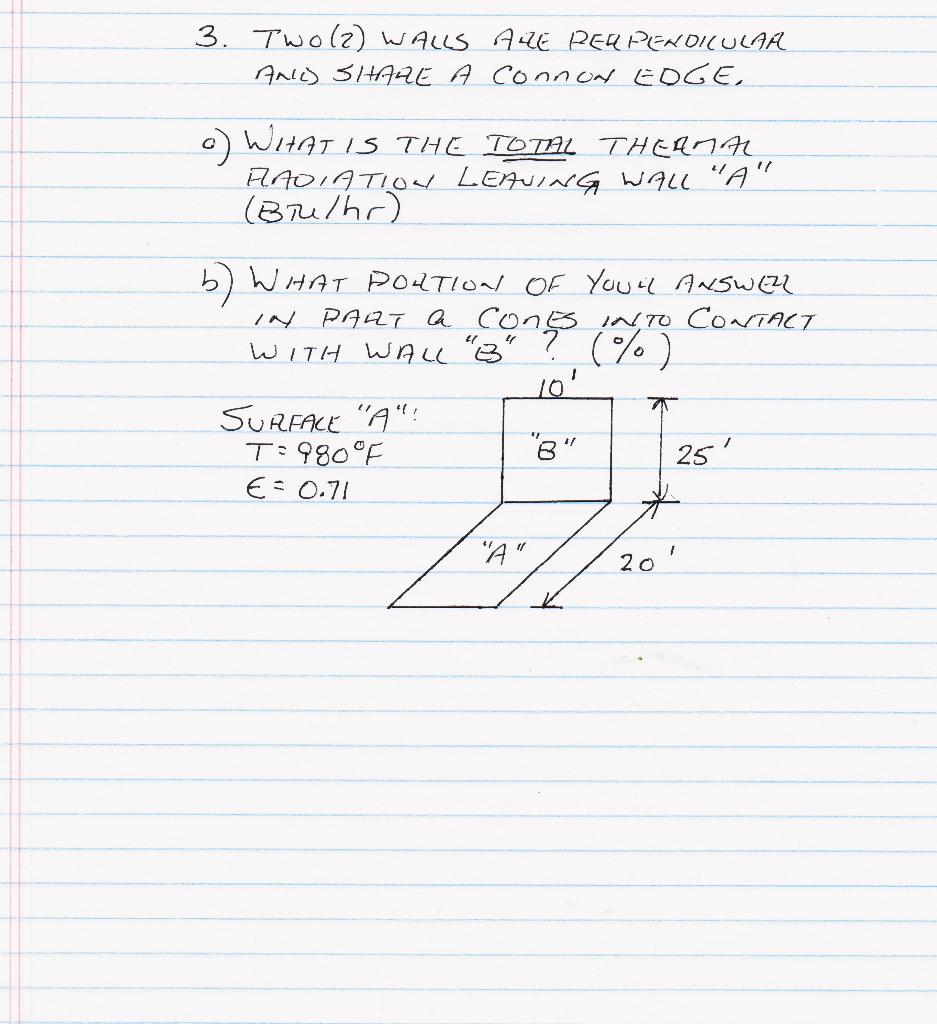 3. TWO (2) WALLS ARE PERPENDICULAR
AND SHARE A COMMON EDGE.
a) WHAT IS THE TOTAL THERMAL
RADIATION LEAVING WALL "A"
(BTU/hr)
b) WHAT PORTION OF YOUR ANSWER
IN PART a COMES INTO CONTACT
WITH WALL "B" ? (%)
10'
SURFACE "A":
"B"
T = 980°F
25'
ϵ = 0.71
"A"
20'